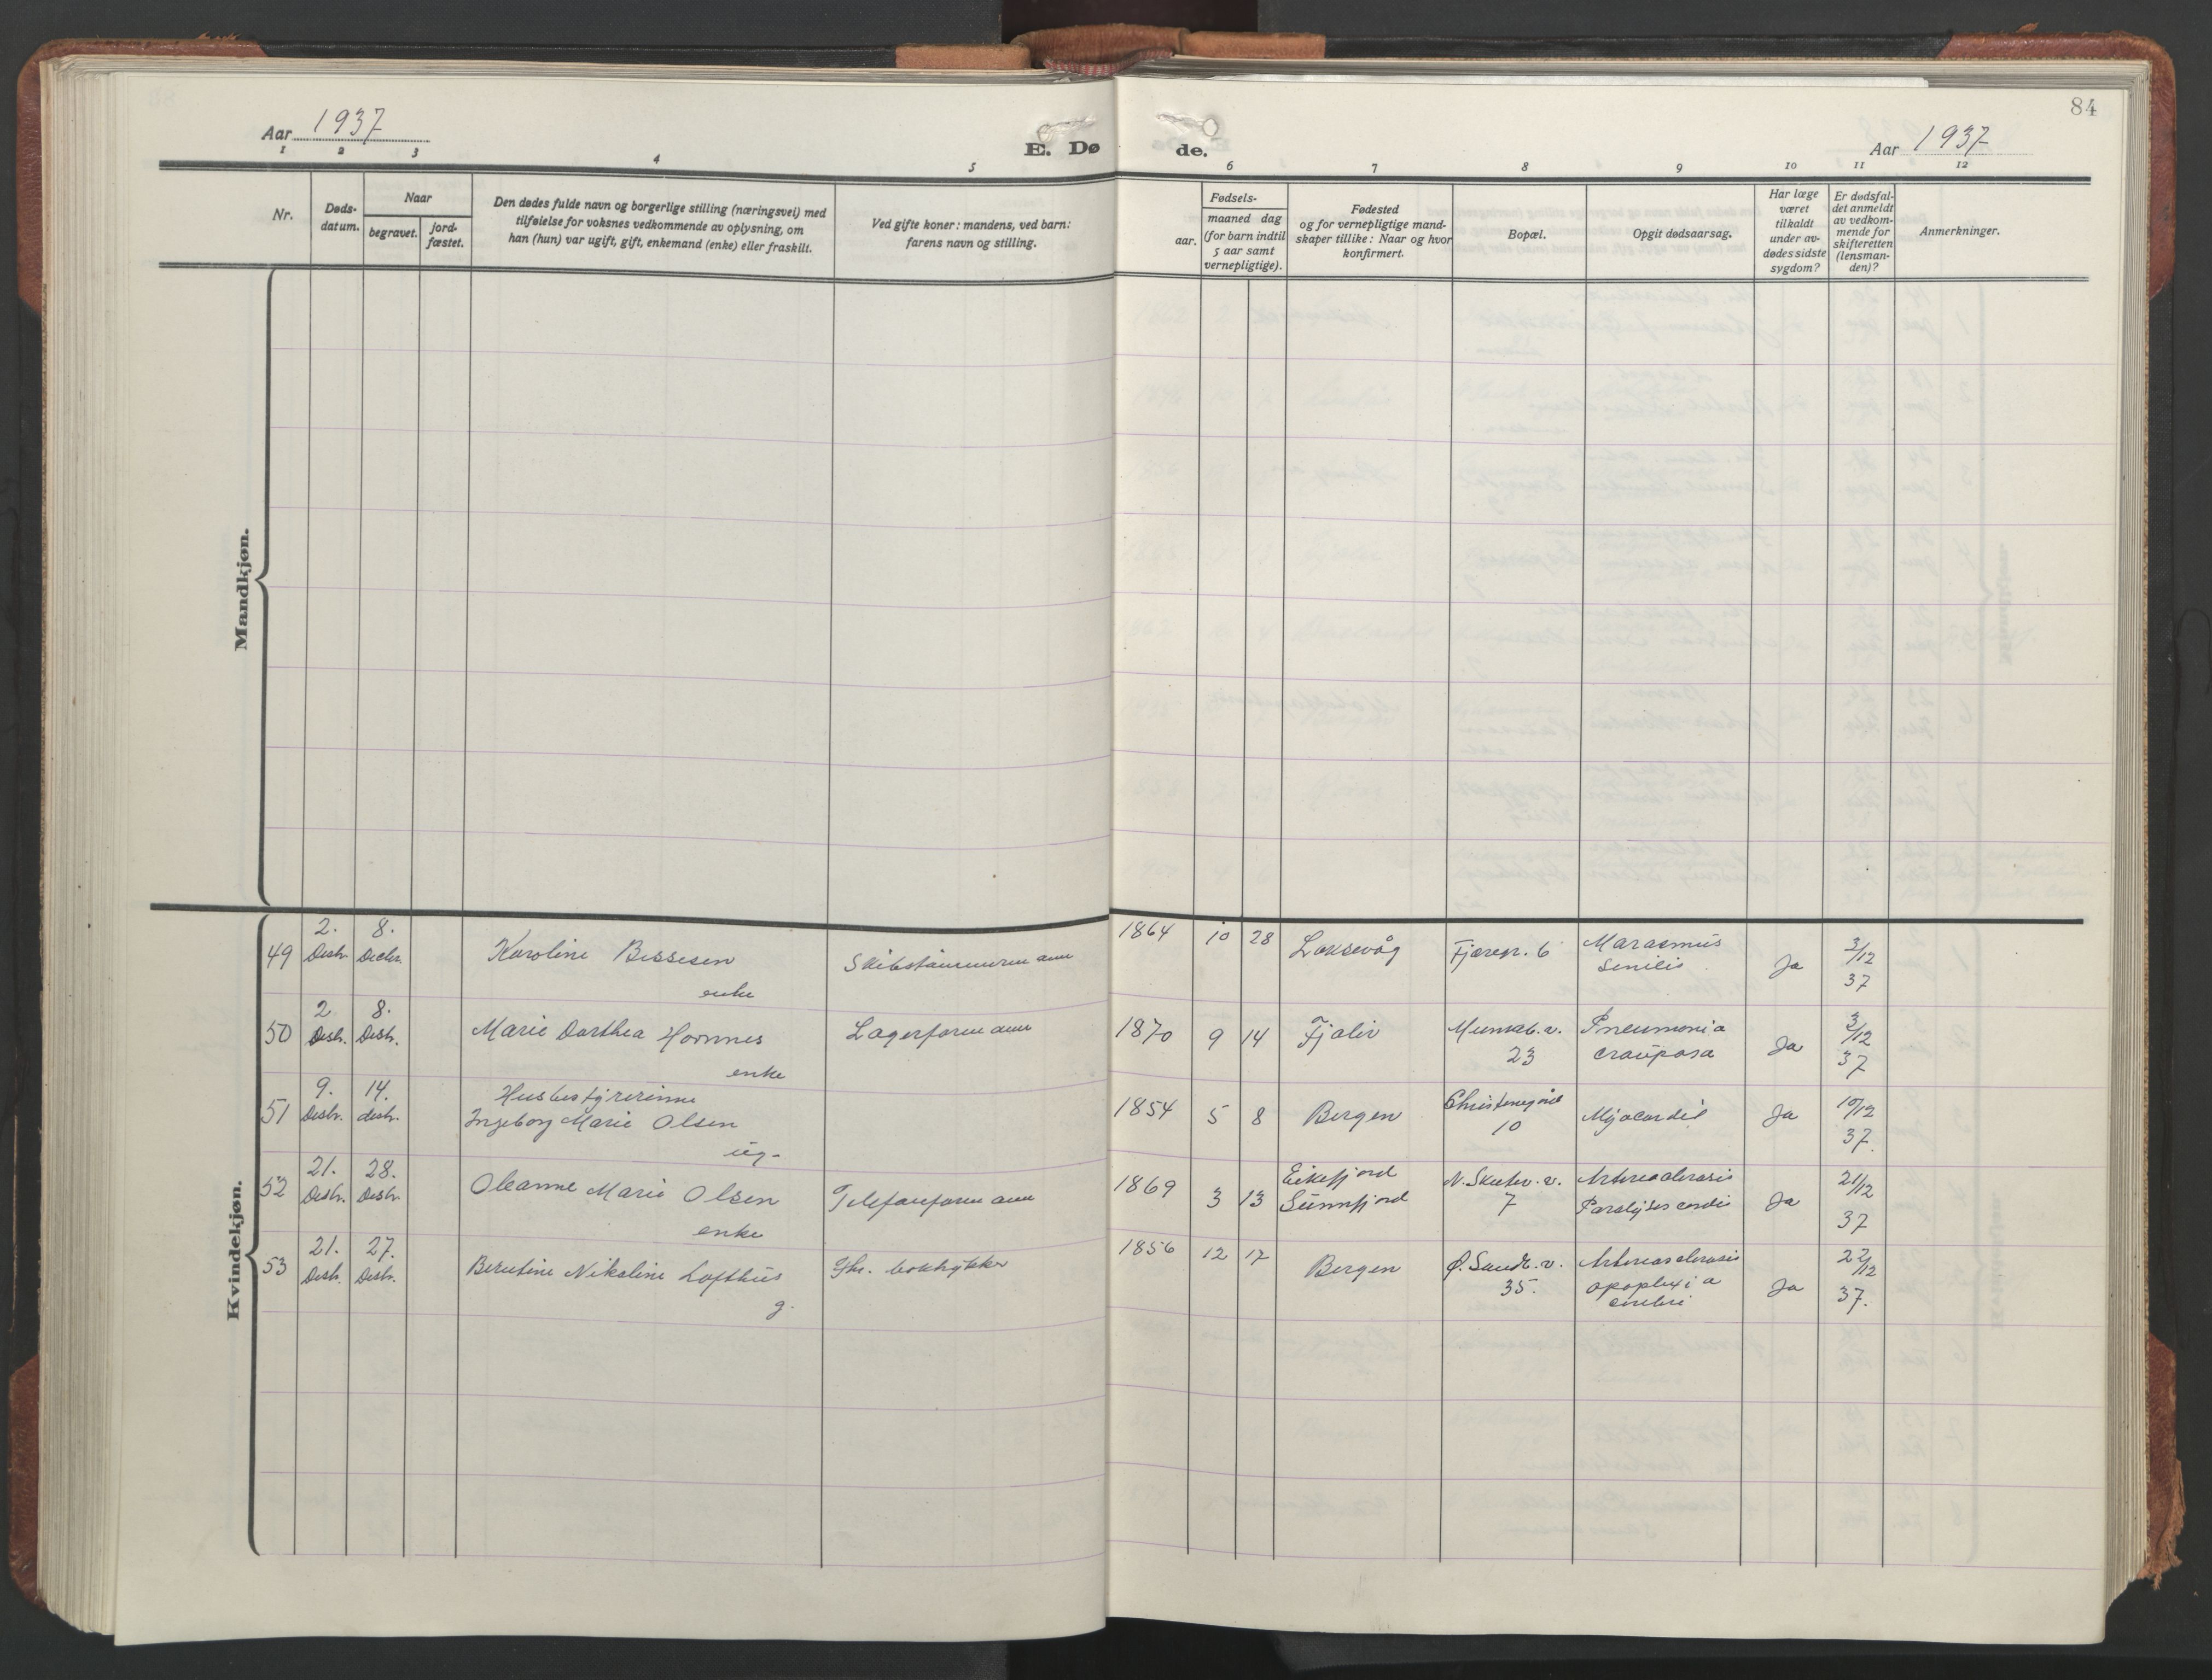 Aar 1937
E. Dø
de.
84
Aar 1937
1 2 3 4 5 6 7 8 9 10 11 12
Nr.
Døds-
datum.
Naar
begravet.
jord-
fæstet.
Den dødes fulde navn og borgerlige stilling (næringsvei) med
tilføielse for voksnes vedkommende av oplysning, om
han (hun) var ugift, gift, enkemand (enke) eller fraskilt.
Ved gifte koner: mandens, ved barn:
farens navn og stilling.
Fødsels-
aar.
maaned dag
(for barn indtil
5 aar samt
vernepligtige).
Fødested
og for vernepligtige mand-
skaper tillike: Naar og hvor
konfirmert.
Bopæl.
Opgit dødsaarsag.
Har læge
været
tilkaldt
under av-
dødes sidste
sygdom?
Er dødsfal-
det anmeldt
av vedkom-
mende for
skifteretten
(lensman-
den)?
Anmerkninger.
Mandkjøn.
Kvindekjøn.
49
2.
Desbr.
8.
Decbr.
Karoline Bessesen
enke
1864
10 28
Laksevåg
Fjæregr. 6
Marasmus
senilis
Ja
3/12
37
50
2
Desb.
8.
Desb.
Marie Dorthea Hornnes
enke
Lagerformann
1870
9 14
Fjaler
Munkeb. v.
23
Pneumonia
crouposa
Ja
3/12
37
51
9.
Desbr.
14.
desbr.
Husbestyrerinne
Ingeborg Marie Olsen
ug.
1854
5 8
Bergen
10
Myocardit
Ja
10/12
37.
52
21.
Desbr.
28.
Desbr.
Oleanne Marie Olsen
enke
Telefonformann
1869
3 13
Eikefjord
Sunnfjord
N. Skutev. v.
7
Arteriosclerosis
Paralyses cordis
Ja
21/12
37
53
21.
Desb.
27.
Desb.
Berntine Nikoline Lofthus
g.
fhv. boktrykker
1856
12 17
Bergen
Ø. Sandv. v.
35.
Arteriosclerosis
apoplexia
cerebri
Ja
22/12
37.